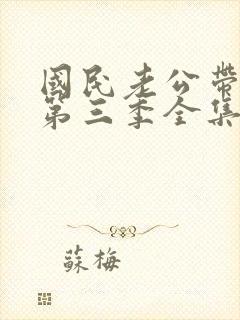 國民老公帶
第三季全集
蘇梅